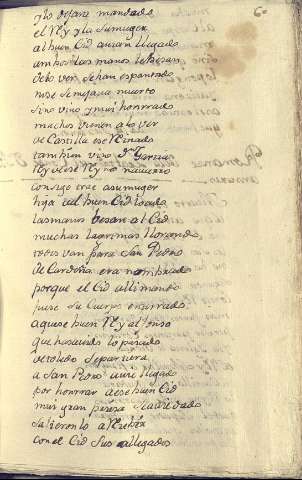 60
y lo dejara mandado
el Rey y la su muger
al buen Cid avian llegado
ambos las manos le besan
de lo ver se han espantado
no se semejava muerto
sino vivo y mui honrrado
muchos vienen a lo ver
de Castilla ese Reinado
tambien vino Dn. Garcia
Rey de ese Reyno navarro
consigo trae a su muger
hija del buen Cid
las manos besan al Cid
muchas lagrimas llorando
todos van para San Pedro
de Cardeña era nombrado
porque el Cid alli mando
fuese su Cuerpo enterrado
aquese buen Rey alfonso
que
de toledo se partiera
a San Pedro avie llegado
por honrrar a ese buen Cid
mui gran priesa se avie dado
salieronlo a Recibir
con el Cid sus allegados